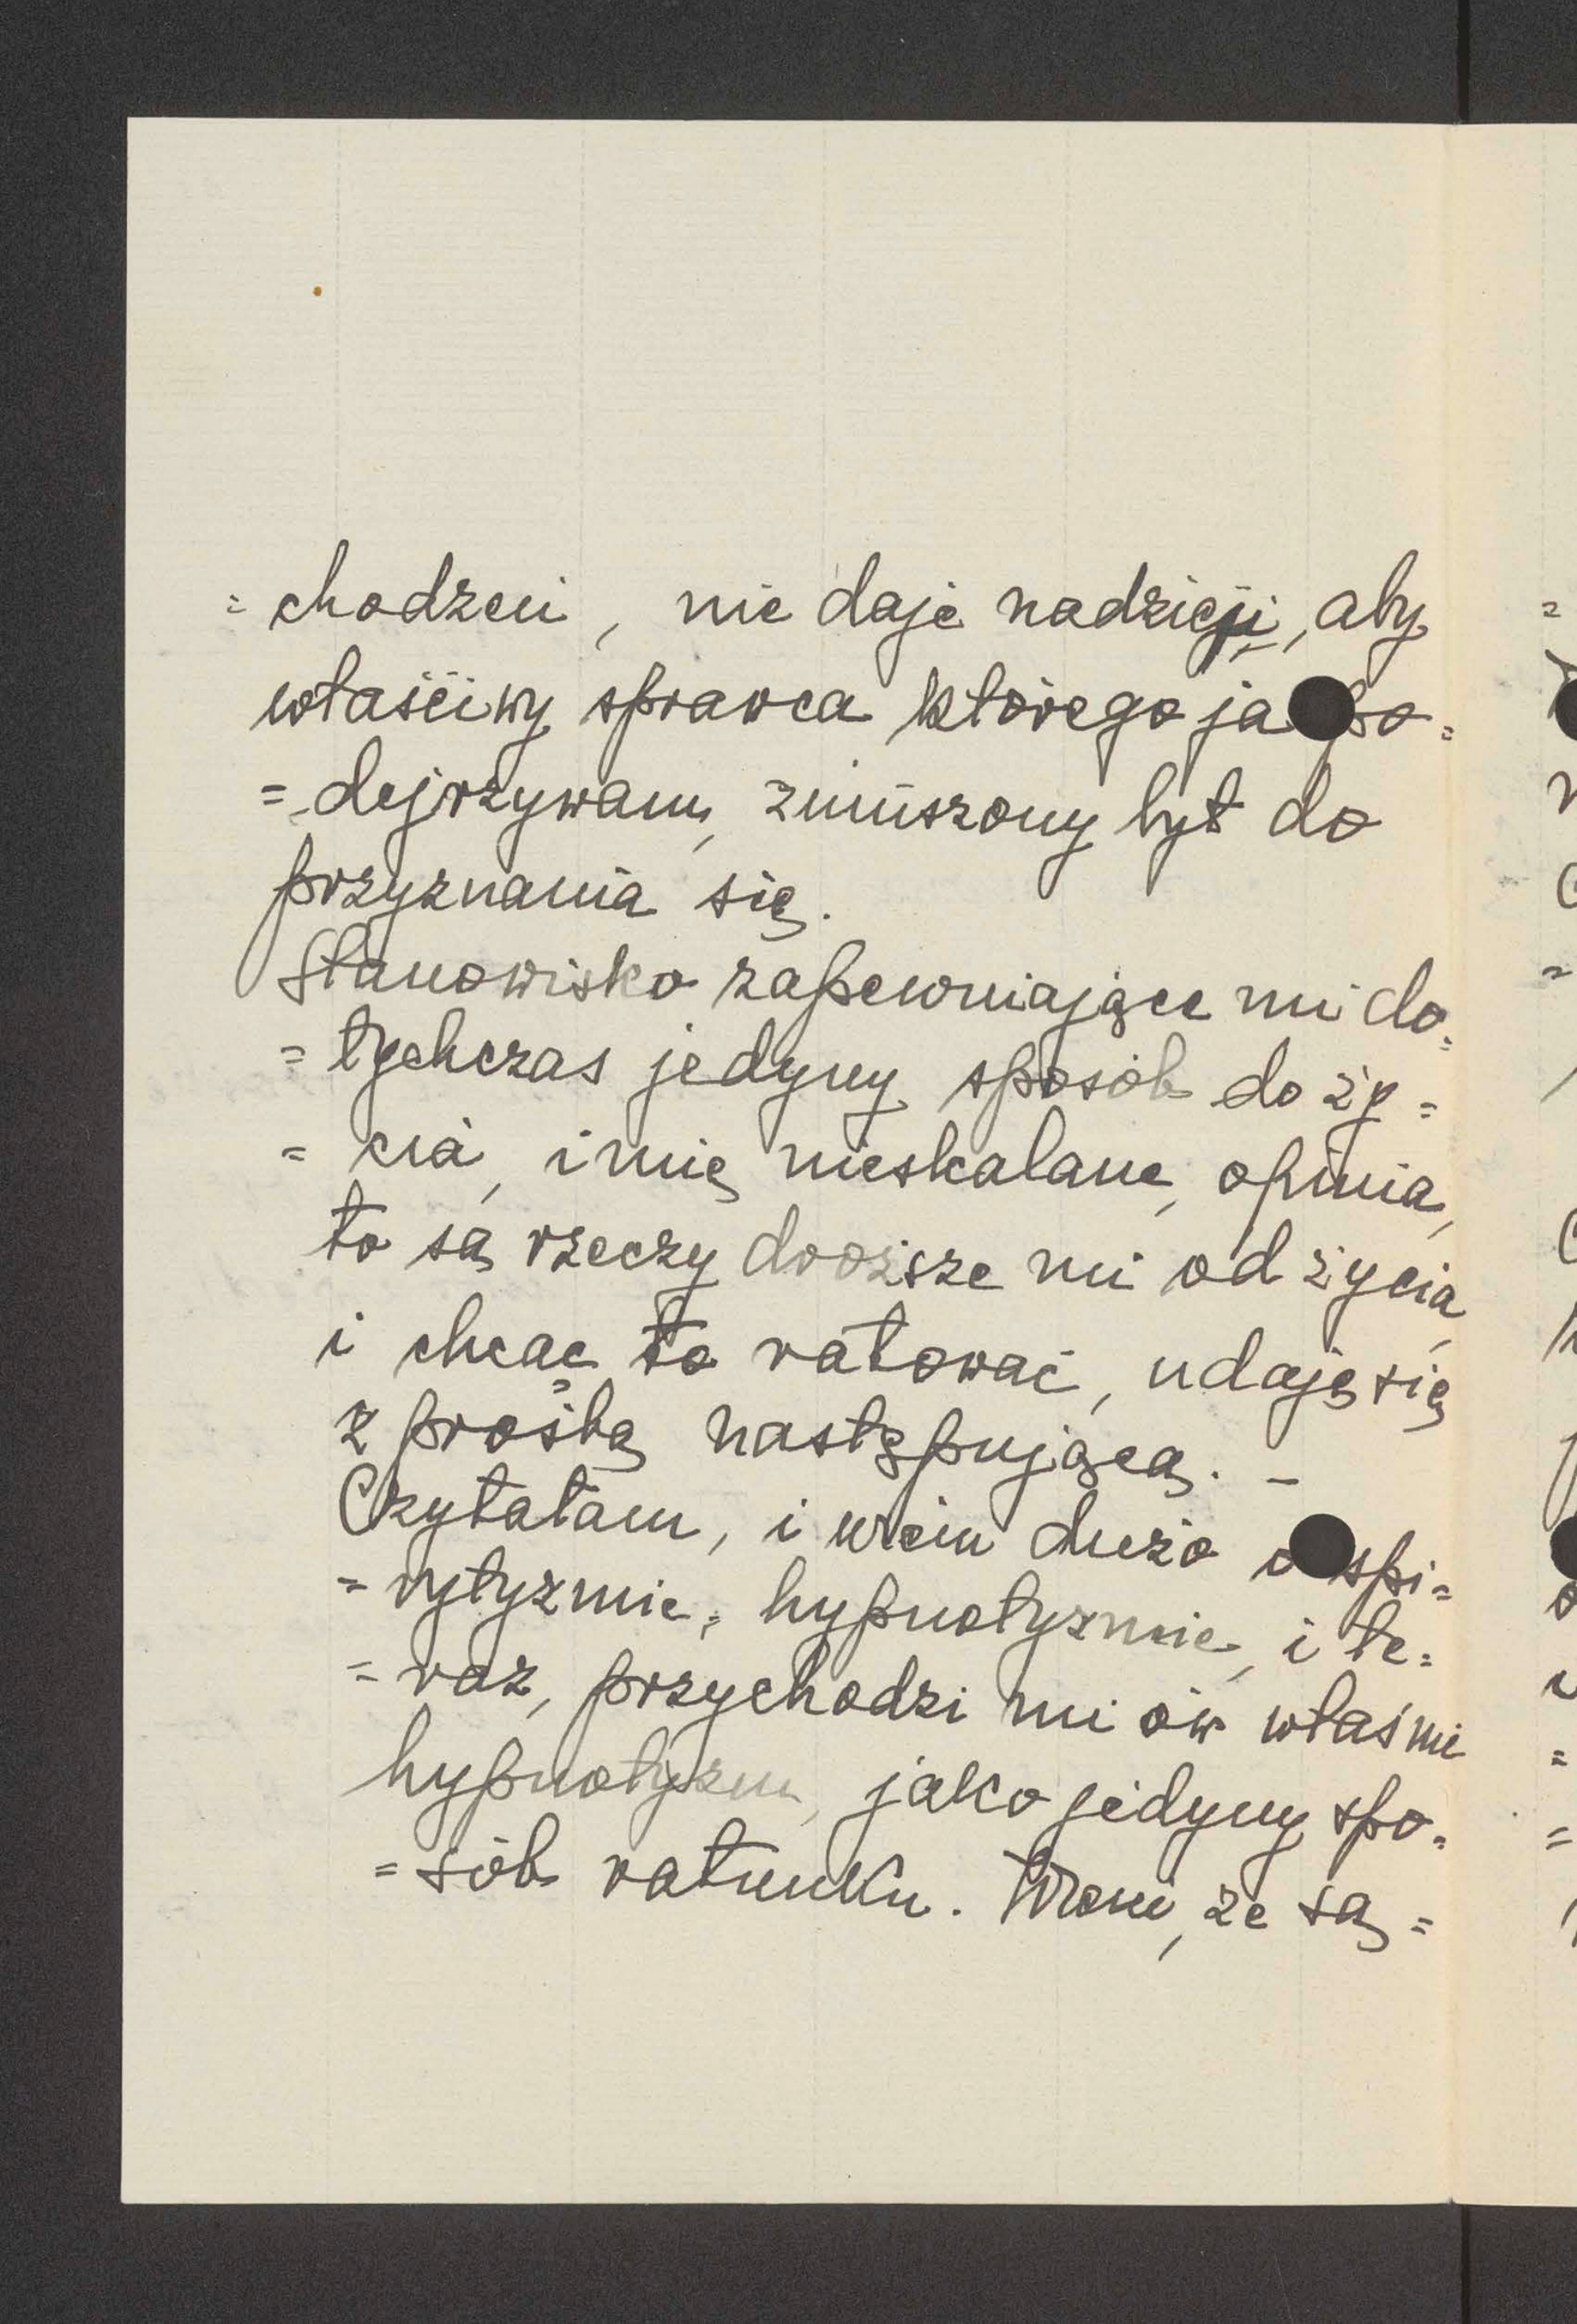 = chodzeń, nie daje nadzieji, aby
właściwy sprawca którego ja po=
= dejrzywam, zmuszony był do
przyznania się.
Stanowisko zapewniające mi do=
= tychczas jedyny sposób do ży=
= cia, imię nieskalane, opinia,
to są rzeczy droższe mi od życia,
i chcąc to ratować, udaję się
z prośbą następującą. –
Czytałam, i wiem dużo o spi=
= rytyzmie, hypnotyzmie, i te=
= raz, przychodzi mi ów właśnie
hypnotyzm, jako jedyny spo=
= sób ratunku. Wiem, że są =